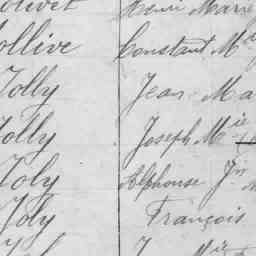 Henri Marie
ollive Constant Mie
Jolly Jean Ma
Jolly Joseph Mie
Joly Alphonse Jn M
Joly François